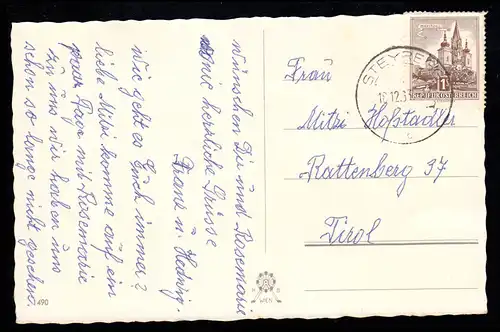 wünschen Dir und Rosemarie
sowie herrliche Grüsse
Franz u. Hedwig.
Wie geht es Euch immer?
liebe Mitzi komme auf ein
paar Tage mit Rosemarie
zu uns wir haben uns
schon so lange nicht gesehen.
490
WIEN
Frau
Mitzi Hofstadler
Rattenberg 37
Tirol
REPUBLIK ÖSTERREICH
1S
STEYR